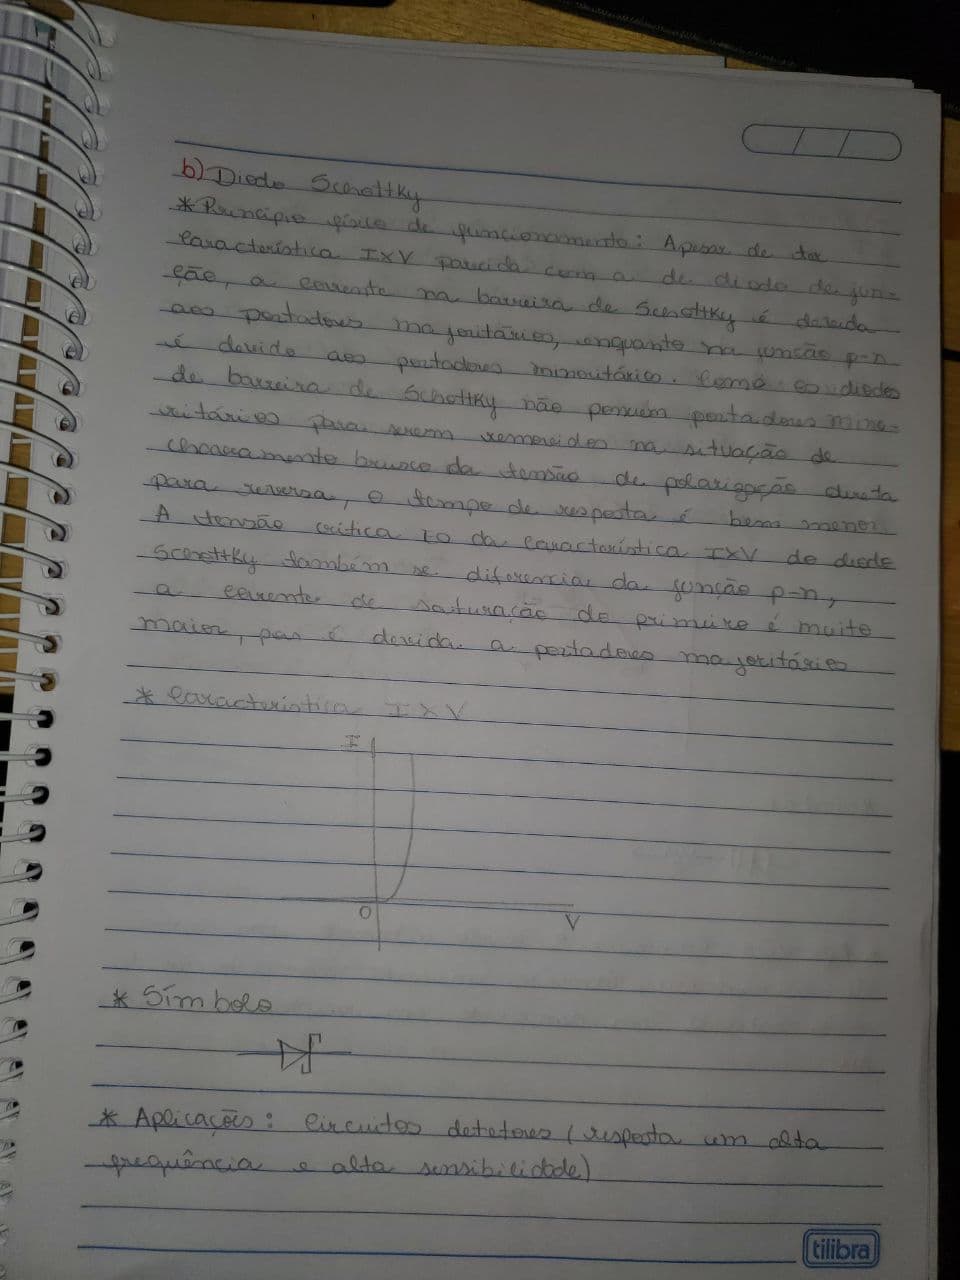 b) Diodo Schottky
* Princípio físico de funcionamento: Apesar de ter
característica IXV parecida com a de diodo de jun-
ção, a corrente na barreira de Schottky é devida
aos portadores majoritários, enquanto na junção p-n
é devido aos portadores minoritário. Como os diodos
de barreira de Schottky não possuem portadores mino-
ritários para serem removidos na situação de
chaveamento brusco da tensão de polarização direta
para reversa, o tempo de resposta é bem menor.
A tensão crítica da característica IXV do diodo
Schottky também se diferencia da junção p-n,
a corrente de saturação do primeiro é muito
maior, pois é devida a portadores majoritários
* Característica IXV
I
O
V
* Símbolo
* Aplicações: Circuitos detetores (resposta um alta
frequência e alta sensibilidade)
tilibra